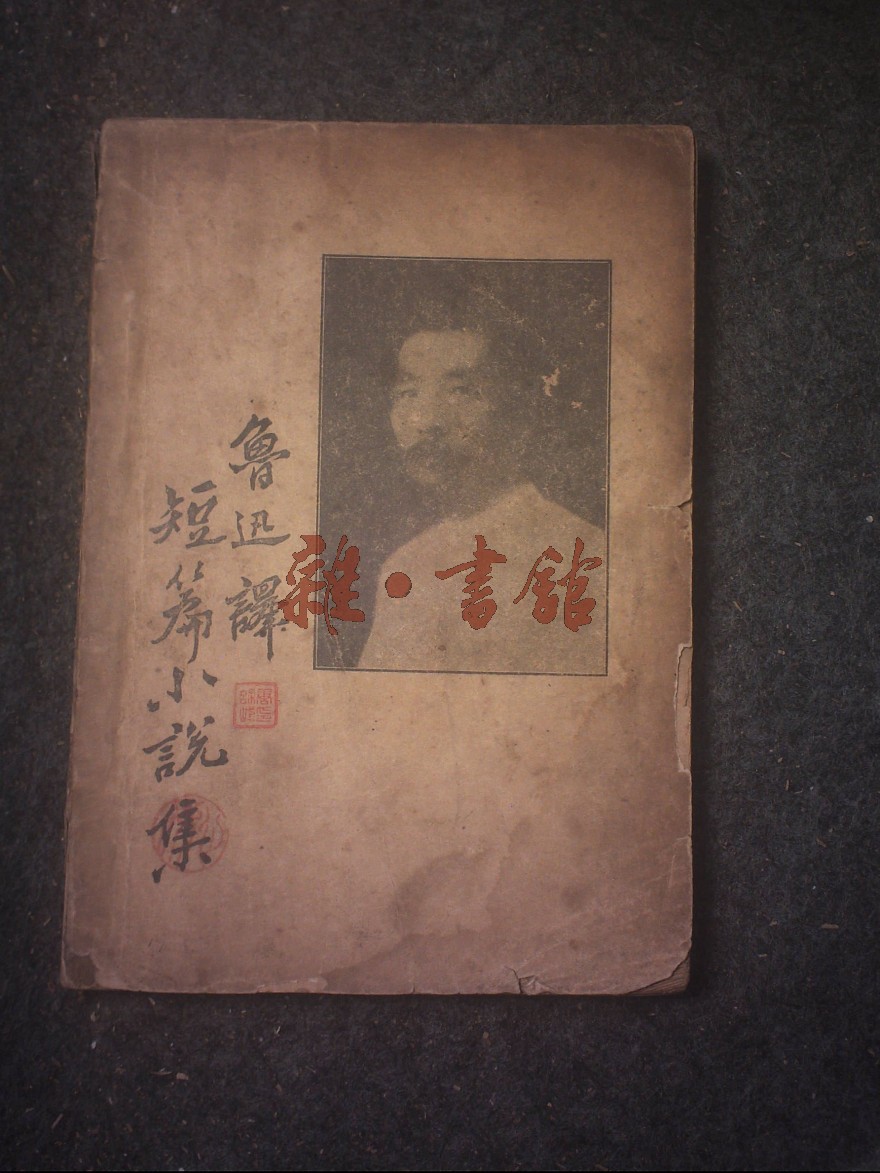 魯迅譯
短篇小說集
雜·書館